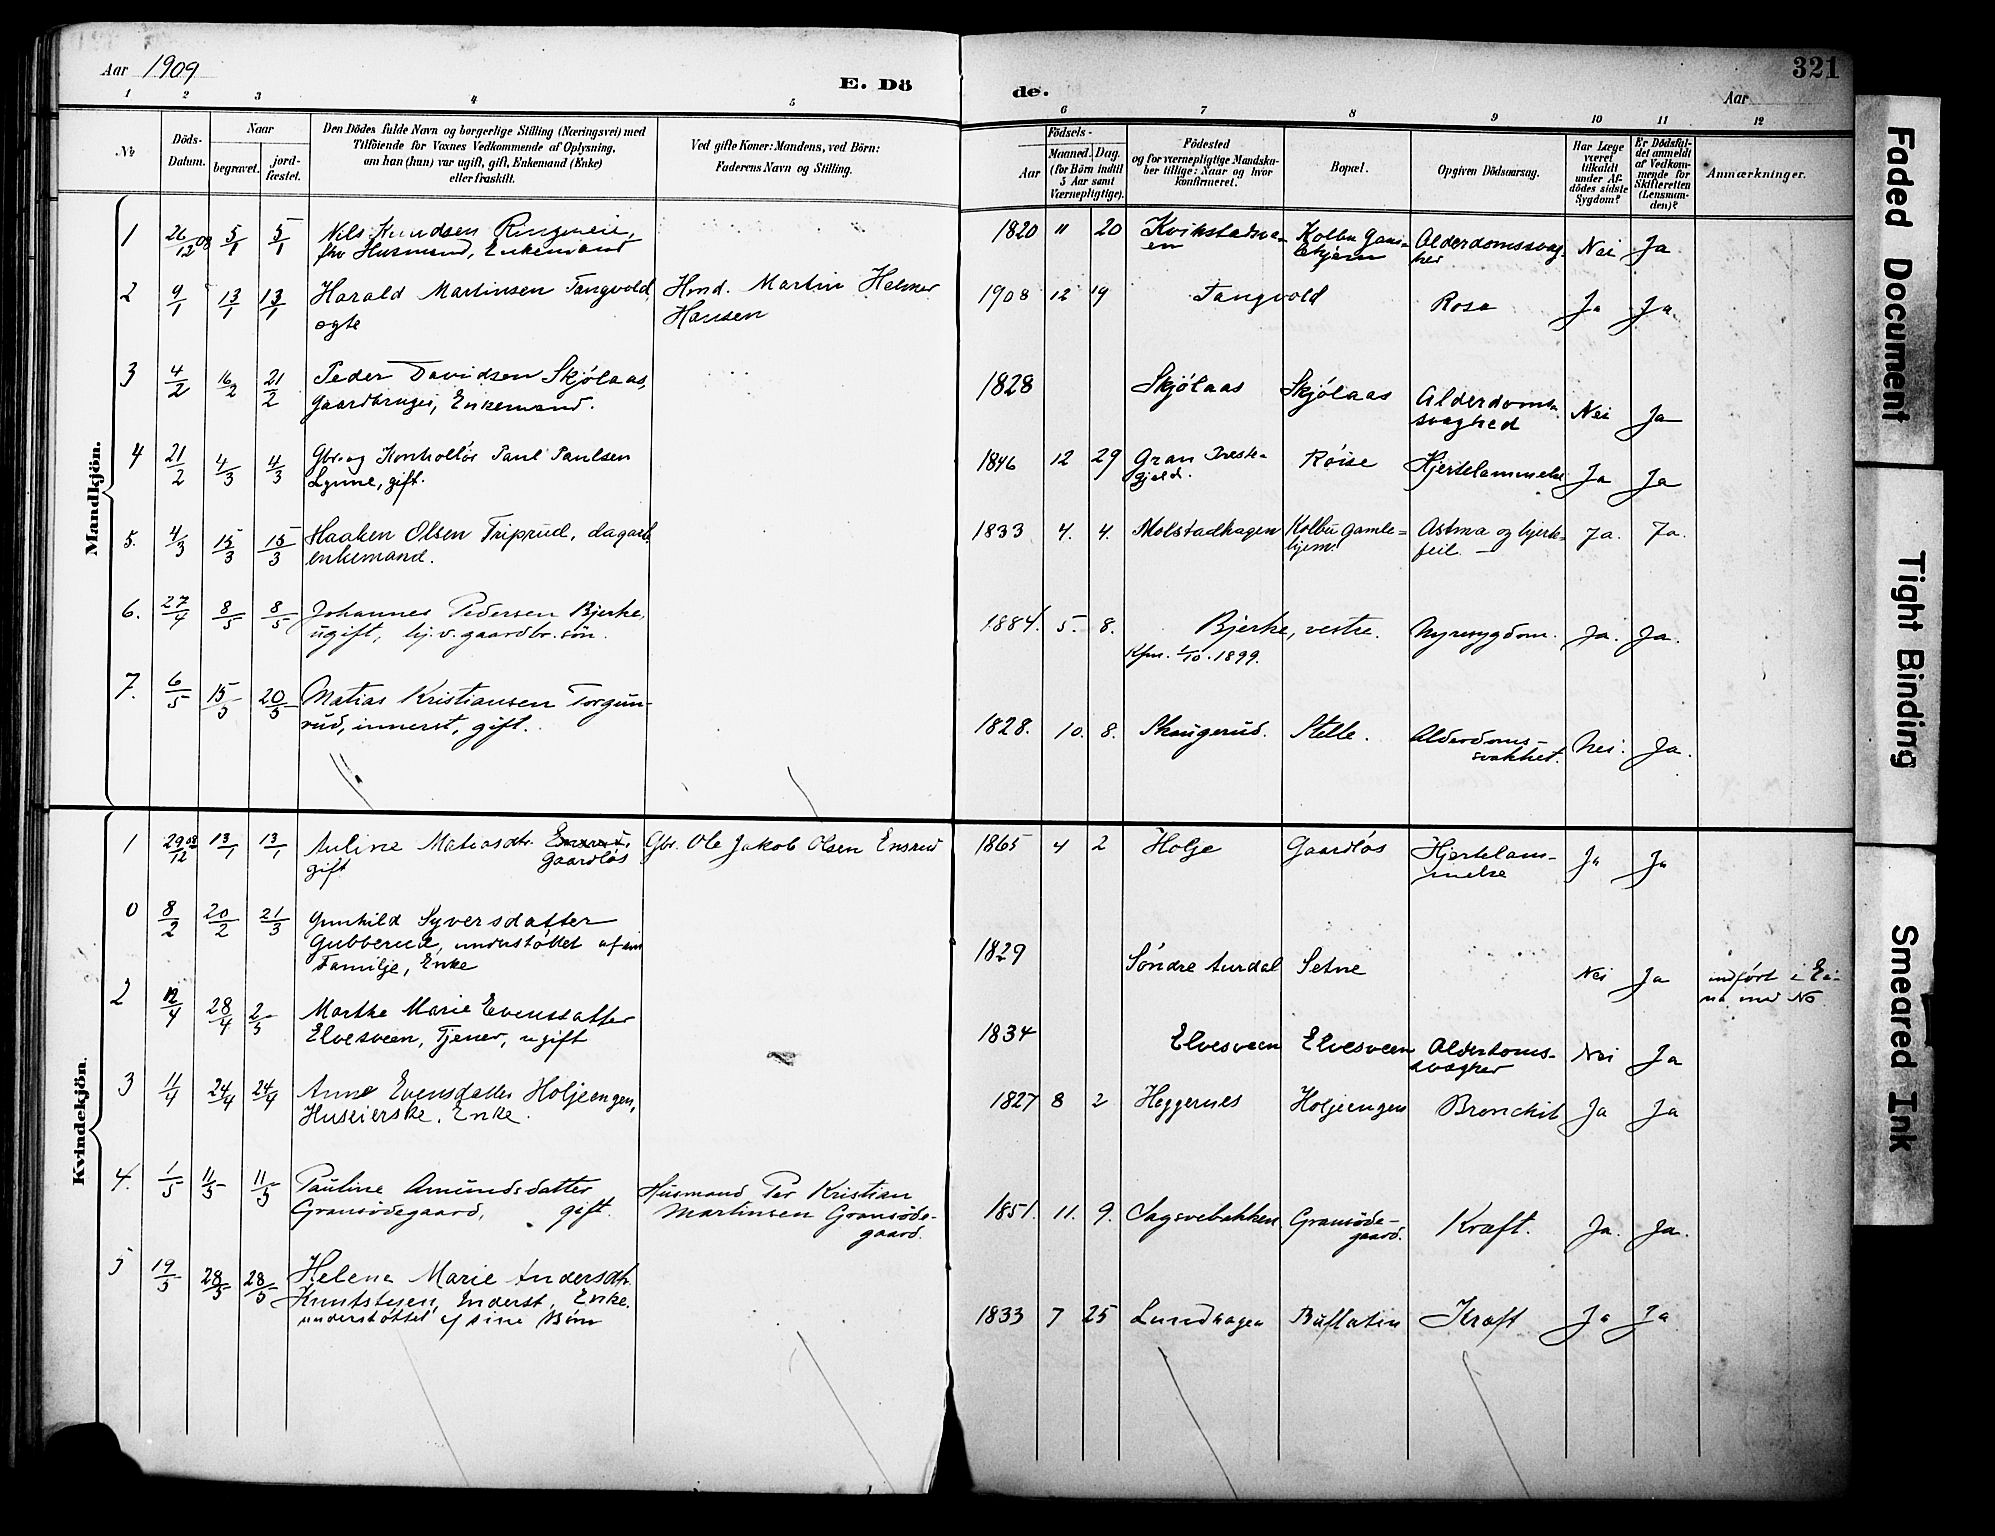 Aar 1909
E. Döde.
321
Aar
1 2 3 4 5 6 7 8 9 10 11 12
No
Döds-Datum.
Naar
begravet.
jord-fæstet.
Den Dödes fulde Navn og borgerlige Stilling (Næringsvei) med
Tilföiende for Voxnes Vedkommende af Oplysning,
om han (hun) var ugift, gift, Enkemand (Enke)
eller fraskilt.
Ved gifte Koner: Mandens, ved Börn:
Faderens Navn og Stilling.
Födsels-
Aar
Maaned. Dag.
(for Börn indtil
5 Aar samt
Værnepligtige).
Födested
og for værnepligtige Mandska-
ber tillige: Naar og hvor
konfirmeret.
Bopæl.
Opgiven Dödsaarsag.
Har Læge
været
tilkaldt
under Af-
dödes sidste
Sygdom?
Er Dödsfal-
det anmeldt
af Vedkom-
mende for
Skifteretten
(Lensman-
den)?
Anmærkninger.
Mandkjön.
1 26/12 08 5/1 5/1 Nils Knudsen Ringmeie,
fhv Husmand, Enkemand
1820 11 20
Kolbu Gam-
lehjem
Alderdomssvag-
hed
Nei Ja
2 9/1 13/1 13/1 Harald Martinsen Tangvold
ægte
Hmd. Martin Helmer
Hansen
1908 12 19 Tangvold Rosa Ja Ja
3 4/2 16/2 21/2 Peder Davidsen Skjölaas,
Gaardbruger, Enkemand.
1828 Skjölaas Skjölaas Alderdoms-
svaghed
Nei Ja
4 21/2 4/3 4/3 Gbr. og Kontrollör Paul Paulsen
Lynne, gift.
1846 12 29 Gran Preste-
gjeld.
Röise Hjertelammelse Ja Ja
5. 4/3 15/3 15/3 Haaken Olsen Triprud, dagarb.
enkemand.
1833 4. 4. Molstadhagen Kolbu Gamle-
hjem.
Astma og hjerte-
feil. —
Ja. Ja.
6. 27/4 8/5 8/5 Johannes Pedersen Bjerke,
ugift, hj. v. gaardbr. sön.
1884. 5. 8. Bjerke, vestre.
Kfm. 1/10. 1899.
Nyresygdom. Ja. Ja.
7. 6/5 15/5 20/5 Matias Kristiansen Torgun-
rud, innerst, gift.
1828. 10. 8. Skaugerud. Stelle. Alderdoms-
svakhet.
Nei. Ja.
Kvindekjön.
1 29/12 08 13/1 13/1 Auline Matiasdtr. Ensrud,
gift Gaardlös
Gbr. Ole Jakob Olsen Ensrud
1865 4 2 Holje Gaardlös Hjertelam-
melse
Ja Ja
0 8/2 20/2 21/3 Gunhild Syversdatter
Gubberud, understöttet af sin
Familje, Enke
1829 Söndre Aurdal Setne Nei Ja indfört i Ei-
na med No
2 12/4 28/4 2/5 Marthe Marie Evensdatter
Elvesveen, Tjener, ugift
1834 Elvesveen Elvesveen Alderdoms-
svaghed
Nei Ja
3 11/4 24/4 24/4 Anne Evensdatter Holjeengen,
Huseierske, Enke.
1827 8 2 Heggernes Holjeengen Bronchit Ja Ja
4. 1/5 11/5 11/5 Pauline Amundsdatter
Gransödegaard, gift.
Husmand Per Kristian
Martinsen Gransöde-
gaard.
1851. 11. 9. Sagsvebakken Gransöde-
gaard.
Kræft. Ja. Ja.
5 19/5 28/5 28/5 Helene Marie Andersdtr.
Inderst, Enke.
understöttet af sine Börn
1833 7 25 Lundhagen Buflatin Kræft Ja Ja
Faded Document
Tight Binding
Smeared Ink